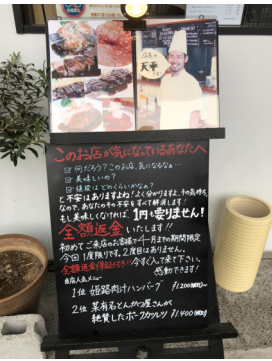 このお店が気になっているあなたへ
☑ 何だろう?このお店、気になるなぁ…
☑ 美味しいの?
☑ 値段はどのくらいかなぁ?
と不安はありますよね!よく分かりますよ、その気持ち。
なので、あなたのその不安をすべて解消します!
もし美味しくなければ、1円も要りません!
全額返金いたします!!
初めてご来店のお客様で4月までの期間限定
今回1度限りです。2度目はありません。
全額返金保証付き!!今すぐ入って来て下さい。
感動できます!
当店人気メニュー
1位 姫路肉汁ハンバーグ ¥1200
2位 某有名とんかつ屋さんが
絶賛したポークカツレツ ¥1400